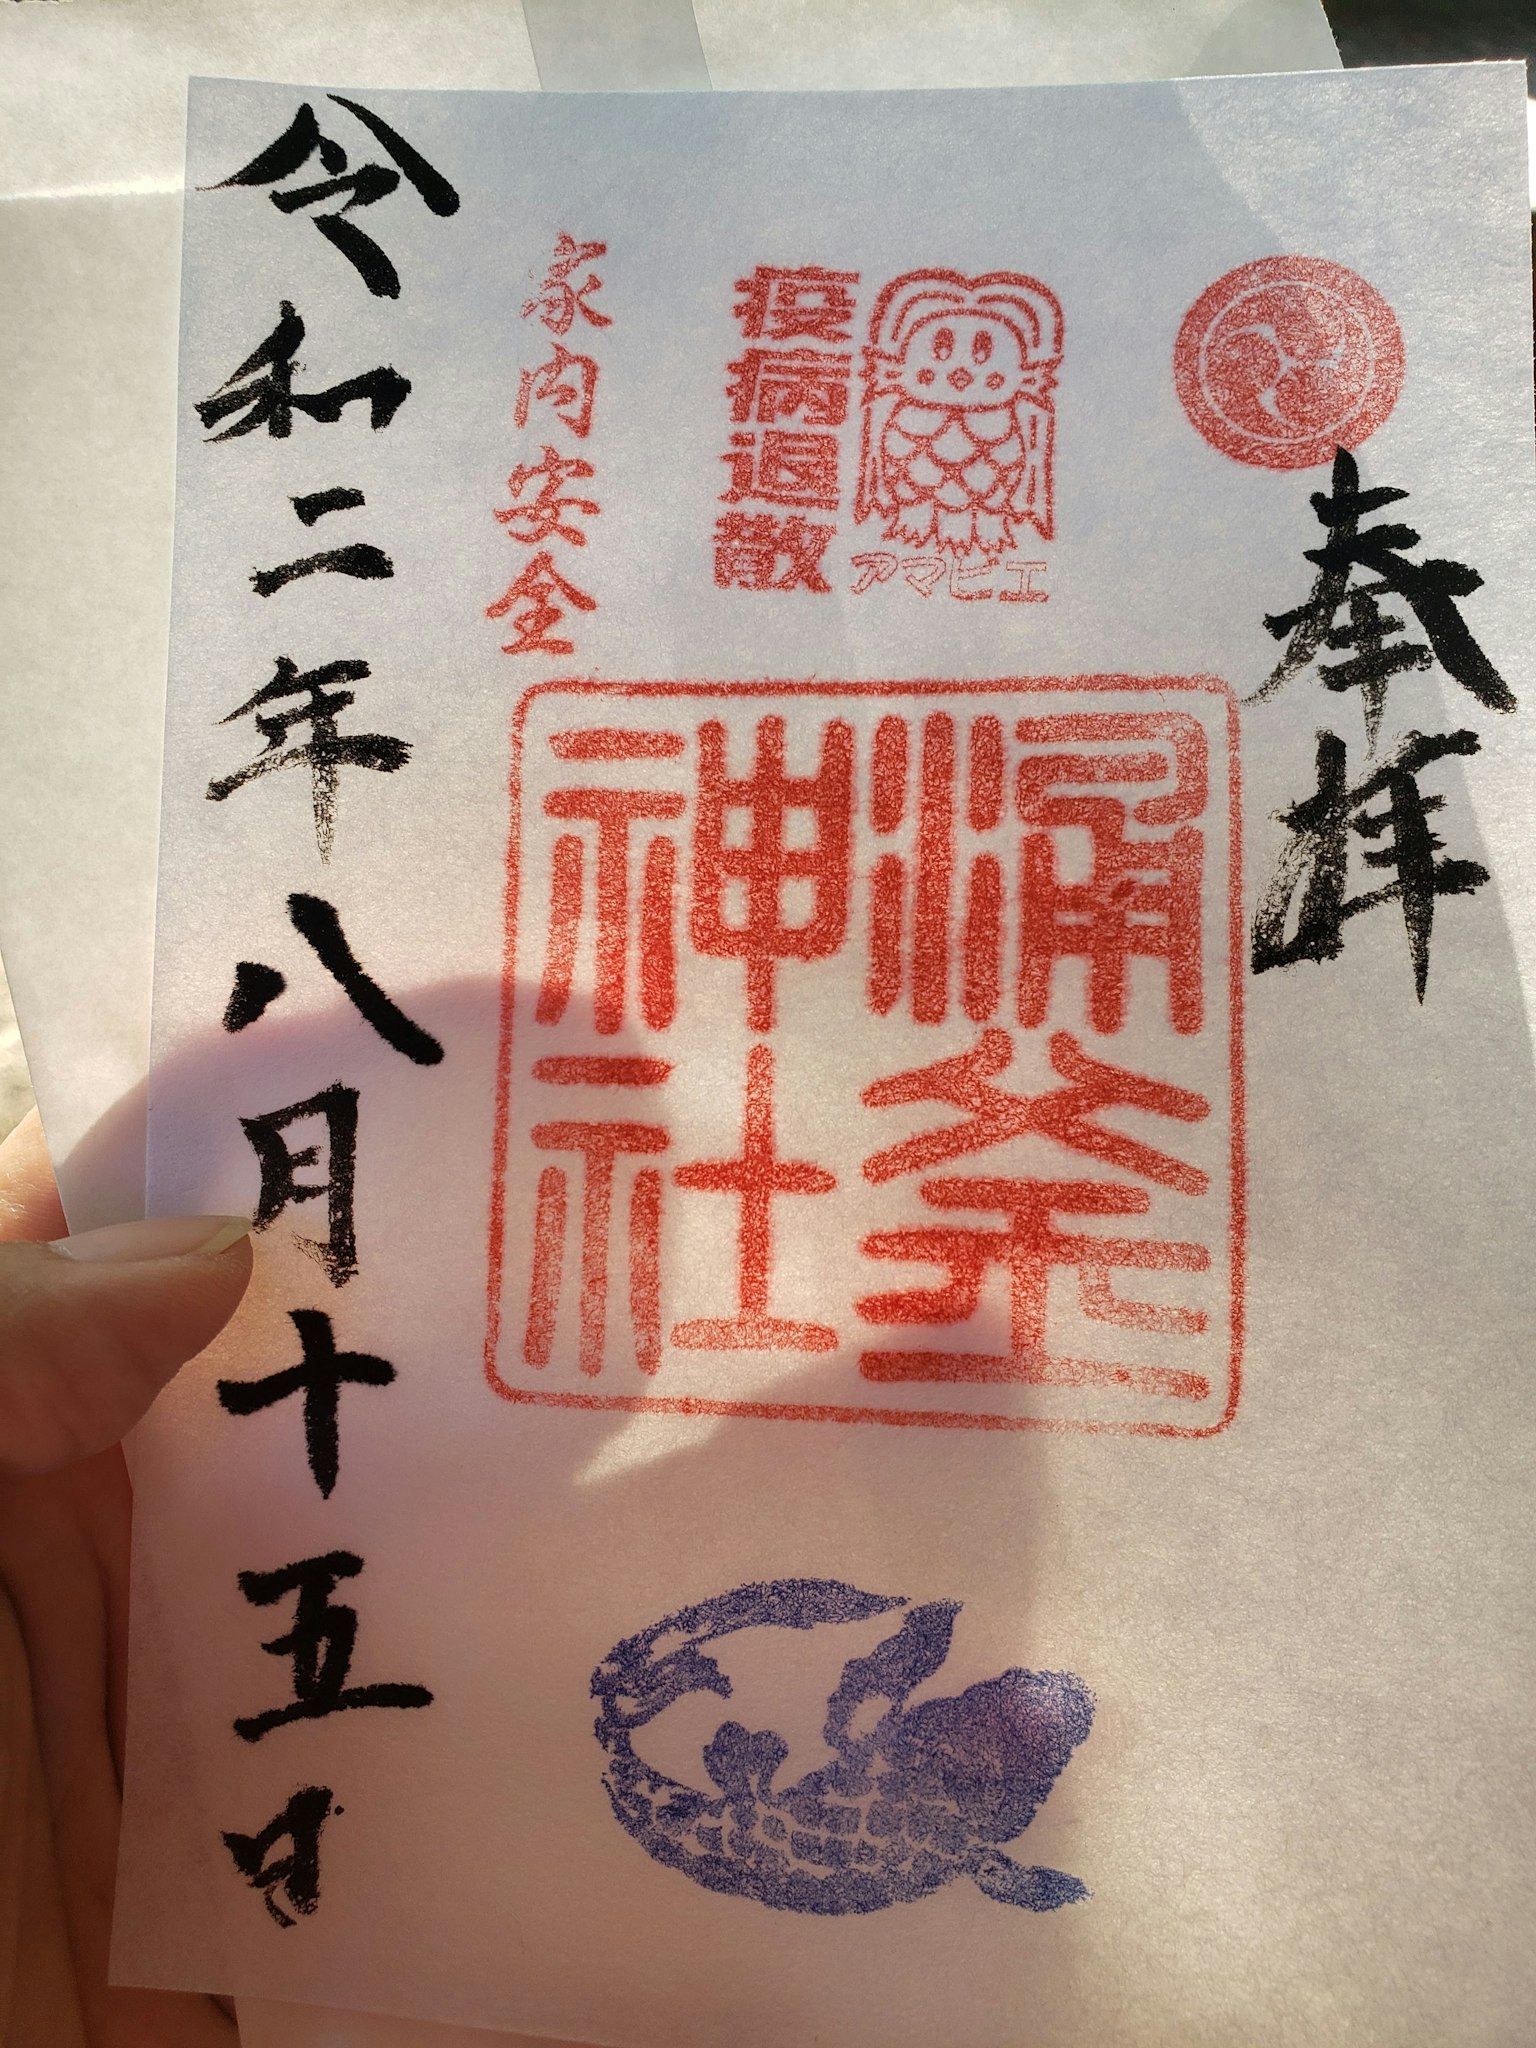 奉拝
アマビエ
疫病退散
涌釜
神社
家内安全
令和二年八月十五日